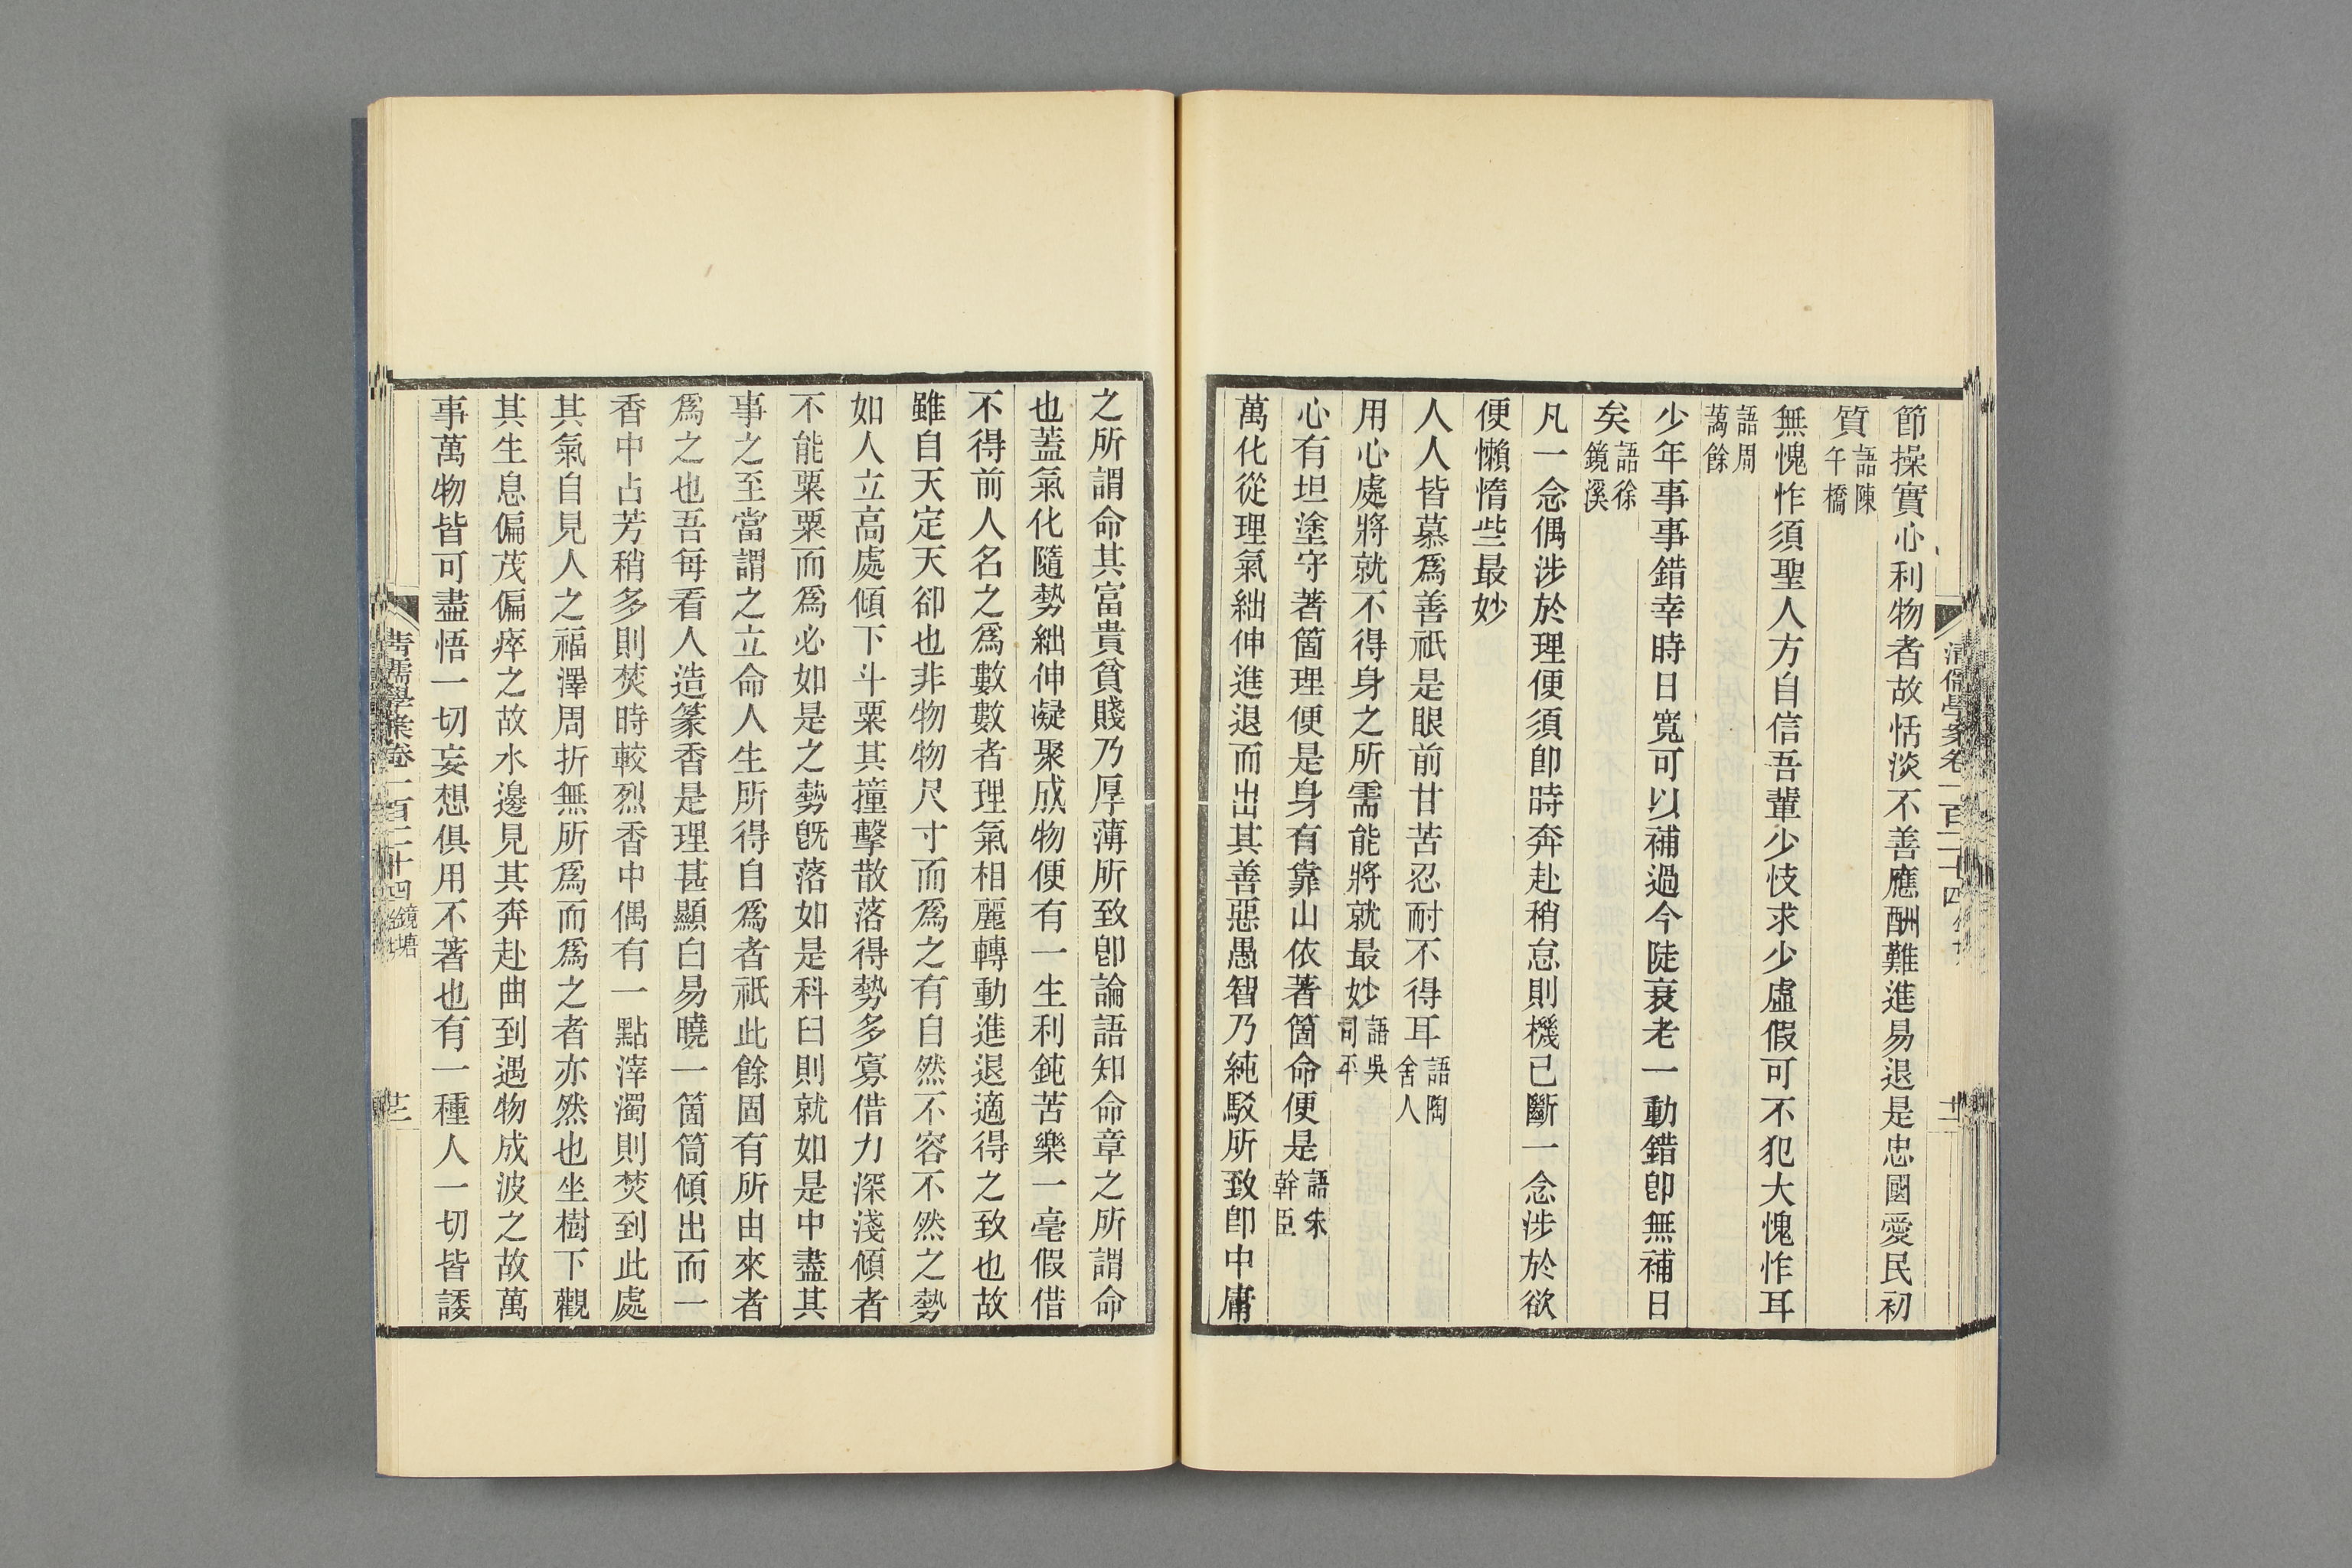 節操實心利物者故恬淡不善應酬難進易退是忠國愛民初
質語陳午橋
無愧怍須聖人方自信吾輩少忮求少虛假可不犯大愧怍耳
語周藹餘
少年事事錯幸時日寬可以補過今陡衰老一動錯卽無補日
矣語徐鏡溪
凡一念偶涉於理便須卽時奔赴稍怠則機已斷一念涉於欲
便懶惰些最妙
人人皆慕爲善祇是眼前甘苦忍耐不得耳語陶舍人
用心處將就不得身之所需能將就最妙語吳司平
心有坦塗守著箇理便是身有靠山依著箇命便是語朱幹臣
萬化從理氣絀伸進退而出其善惡愚智乃純駁所致卽中庸
之所謂命其富貴貧賤乃厚薄所致卽論語知命章之所謂命
也蓋氣化隨勢絀伸凝聚成物便有一生利鈍苦樂一毫假借
不得前人名之爲數數者理氣相麗轉動進退適得之致也故
雖自天定天卻也非物物尺寸而爲之有自然不容不然之勢
如人立高處傾下斗粟其撞擊散落得勢多寡借力深淺傾者
不能粟粟而爲必如是之勢旣落如是科臼則就如是中盡其
事之至當謂之立命人生所得自爲者祇此餘固有所由來者
爲之也吾每看人造篆香是理甚顯白易曉一箇筒傾出而一
香中占芳稍多則焚時較烈香中偶有一點滓濁則焚到此處
其氣自見人之福澤周折無所爲而爲之者亦然也坐樹下觀
其生息偏茂偏瘁之故水邊見其奔赴曲到遇物成波之故萬
事萬物皆可盡悟一切妄想俱用不著也有一種人一切皆諉
清儒學案卷一百二十四 鏡塘